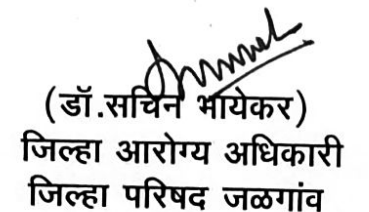 (डॉ.सचिन भायेकर)
जिल्हा आरोग्य अधिकारी
जिल्हा परिषद जळगांव